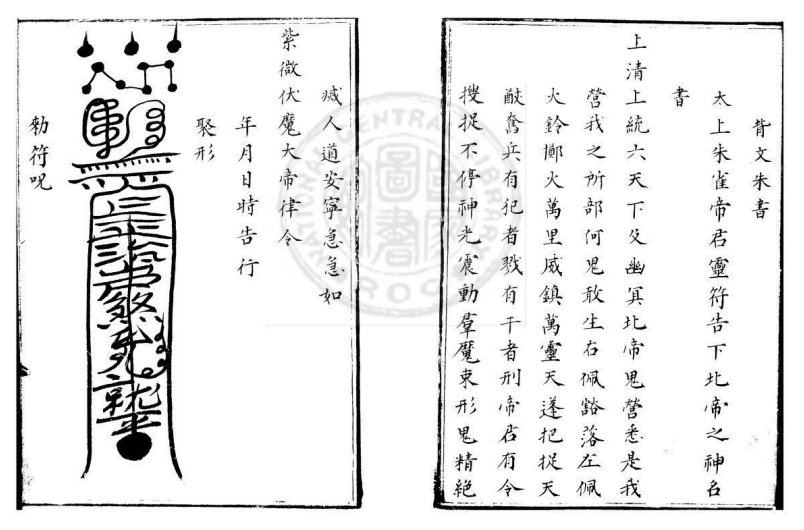 背文朱書
太上朱雀帝君靈符告下北帝之神名
書
上清上統六天下及幽冥北帝鬼營悉是我
營我之所部何鬼敢生右佩豁落左佩
火鈴擲火萬里威鎮萬靈天蓬把捉天
猷奮兵有犯者戮有干者刑帝君有令
搜捉不停神光震動羣魔束形鬼精絶
滅人道安寧急急如
紫微伏魔大帝律令
年月日時告行
聚形
勑符呪